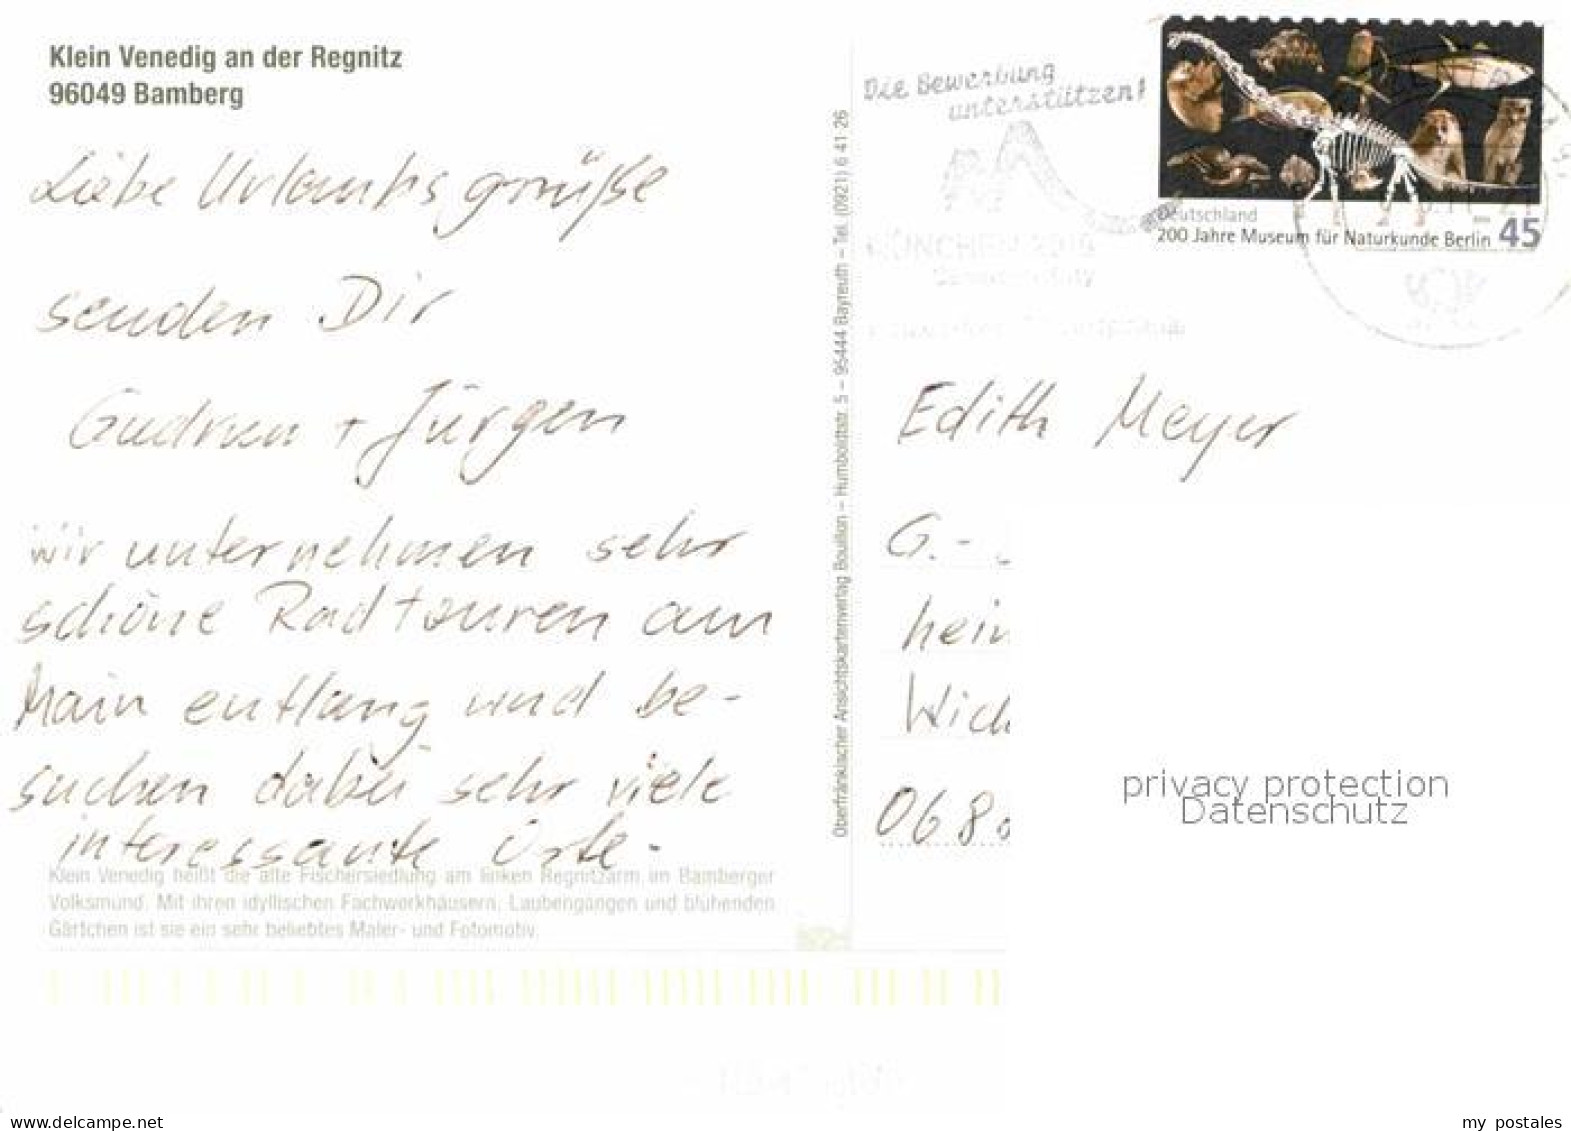 Klein Venedig an der Regnitz
96049 Bamberg
Liebe Urlaubsgrüße
senden Dir
Gudrun + Jürgen
wir unternehmen sehr
schöne Radtouren am
Main entlang und be-
suchen dabei sehr viele
interessante Orte.
Klein Venedig heißt die alte Fischersiedlung am linken Regnitzarm im Bamberger
Volksmund. Mit ihren idyllischen Fachwerkhäusern, Laubengängen und blühenden
Gärtchen ist sie ein sehr beliebtes Maler- und Fotomotiv.
Oberfränkischer Ansichtskartenverlag Bouillon – Humboldtstr. 5 – 95444 Bayreuth – Tel. (0921) 6 41 26
Die Bewerbung
unterstützen!
MÜNCHEN
Deutschland
200 Jahre Museum für Naturkunde Berlin 45
Edith Meyer
G.-
hein
Wick
068
privacy protection
Datenschutz
www.delcampe.net
my_postales